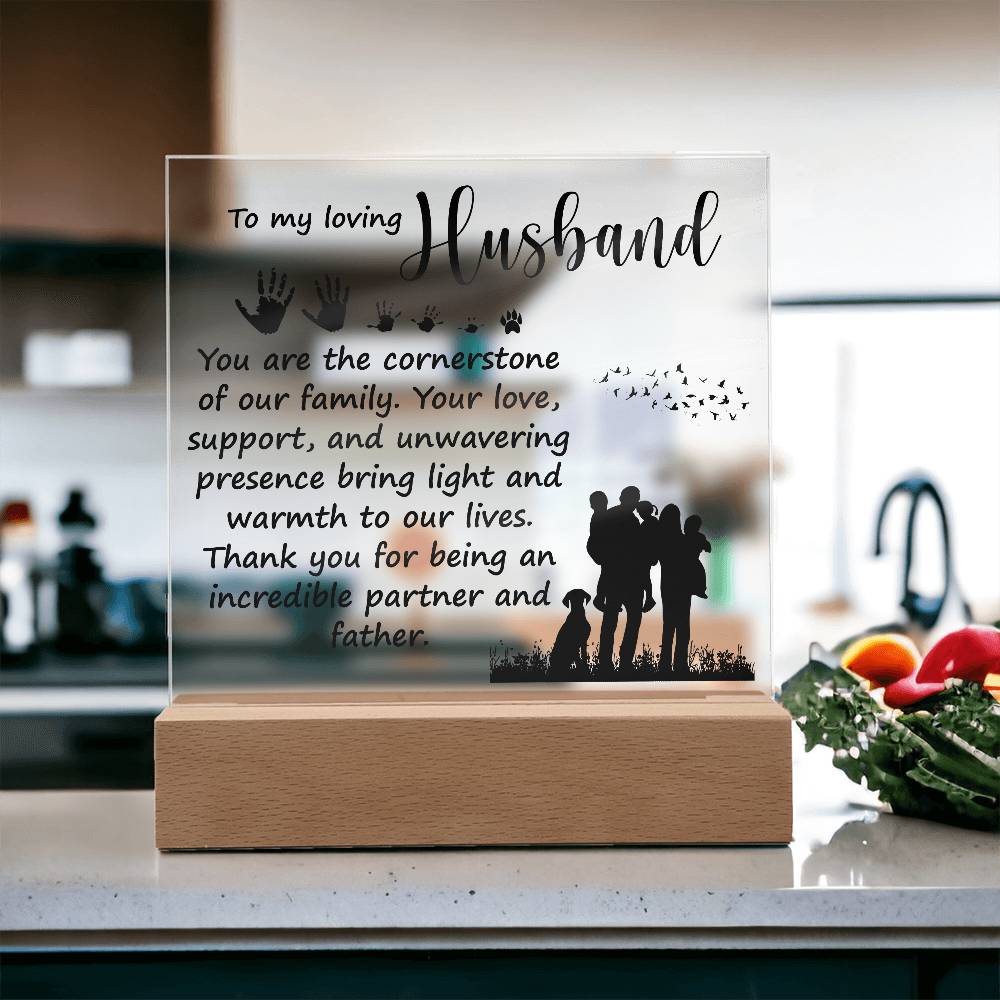 To my loving Husband
You are the cornerstone
of our family. Your love,
support, and unwavering
presence bring light and
warmth to our lives.
Thank you for being an
incredible partner and
father.